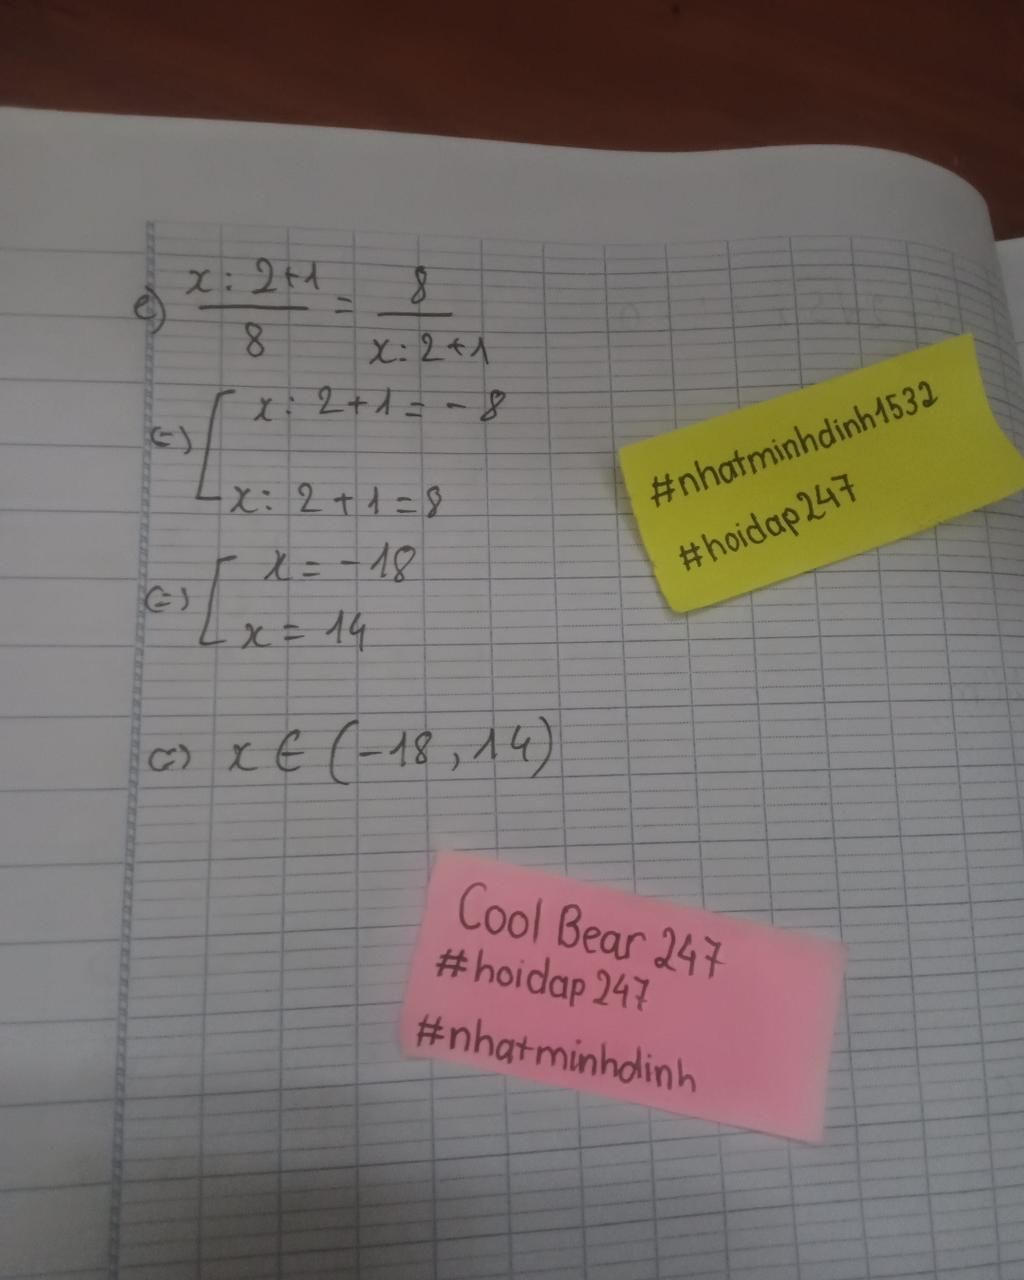 e) x : 2+1 / 8 = 8 / x : 2+1
(=) [ x : 2+1 = -8
x : 2+1 = 8
(=) [ x = -18
x = 14
(=) x ∈ (-18, 14)
#nhatminhdinh1532
#hoidap247
Cool Bear 247
#hoidap247
#nhatminhdinh